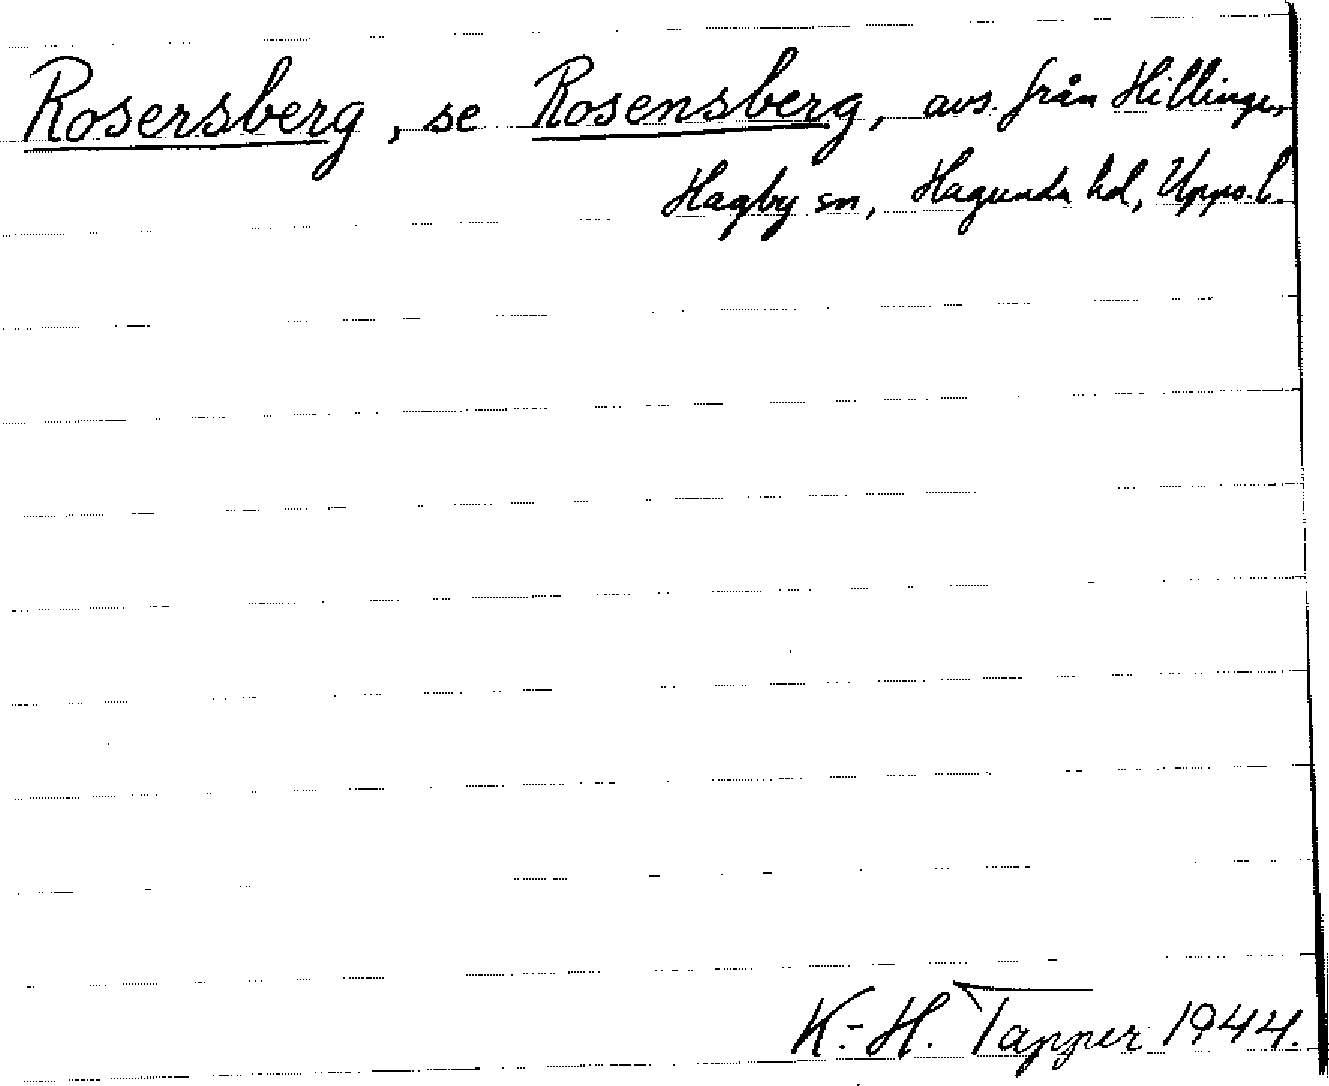 Rosersberg, se Rosensberg, avs. från Hillinge,
Hagby sn, Hagunda hd, Upps. l.
K.-H. Tapper 1944.